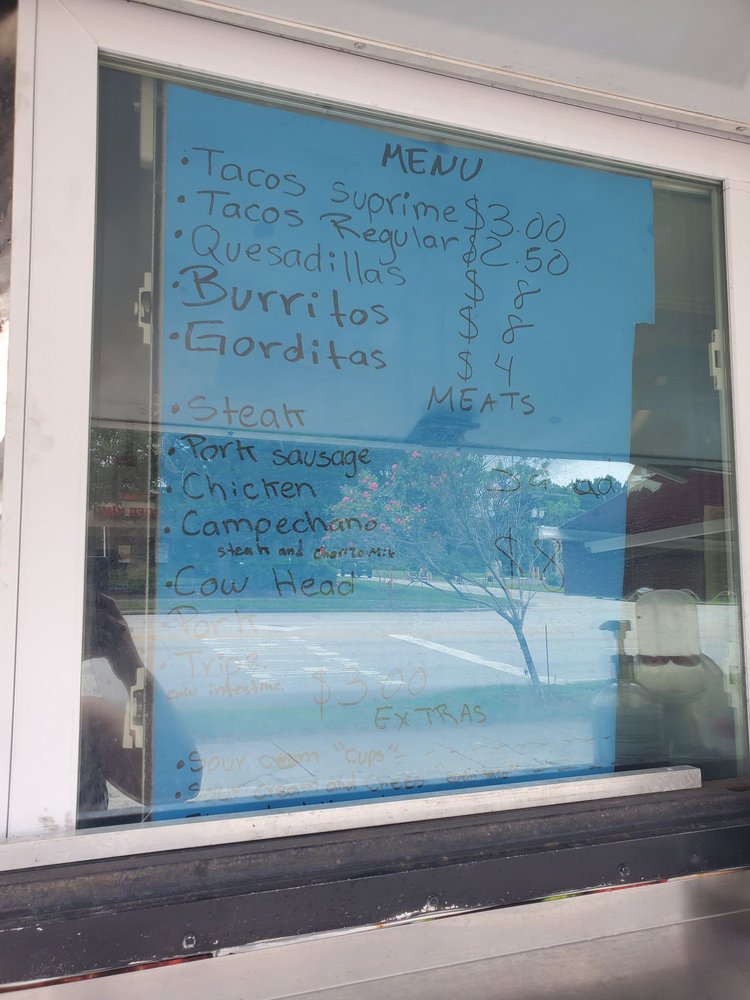 MENU
• Tacos suprime $3.00
• Tacos Regular $2.50
• Quesadillas $ 8
• Burritos $ 8
• Gorditas $ 4
MEATS
• Steak
• Pork sausage
• Chicken
• Campechano
steak and chorizo Mix
$8
• Cow Head
• Pork
• Tripe
cow intestine $3.00
EXTRAS
• Sour cream "cups"
• Sour cream and cheese